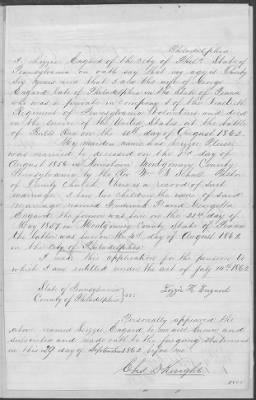 Philadelphia
I Lizzie Engard of the city of Phila State of
Pennsylvania on oath say that my age is twenty
six years and that I am the wife of George
Engard late of Philadelphia in the State of Penna
who was a private in company of the
Regiment of Pennsylvania Volunteers and died
in the service of the United States at the battle
of Bull Run on the day of August 1862.
My maiden name was Lizzie
was married to deceased on the 3rd day of
August 1856 in Norristown Montgomery County
Pennsylvania by the Rev Pastor
of Trinity Church. There is a record of said
marriage. I have two children the issue of said
marriage named Frederick and
Engard the former was born on the day of
May 1857 in Montgomery County State of Penna
the latter was born on the day of August 1862
in the city of Philadelphia
I make this application for the pension to
which I am entitled under the act of July 14th 1862
State of Pennsylvania
County of Philadelphia ss: Lizzie H Engard
Personally appeared the
above named Lizzie Engard to me well known and
subscribed and made oath to the foregoing statement
on this 29 day of September 1862 before me
Chas D Knight